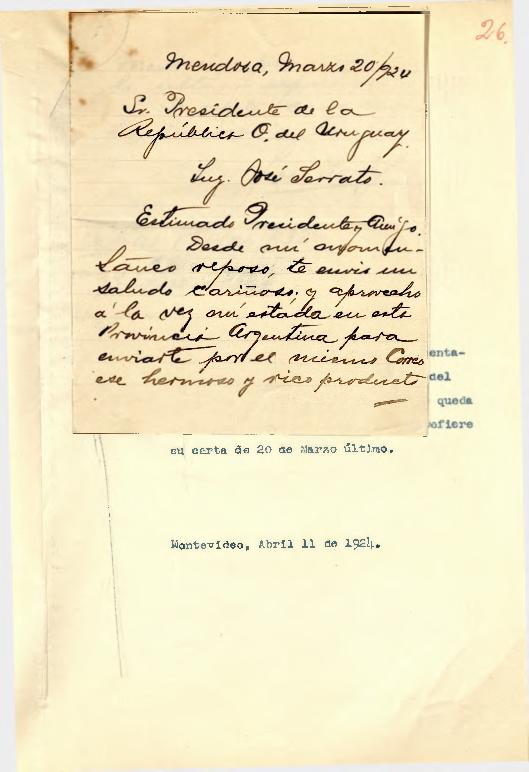 26.
Mendosa, Marzo 20/924
Sr. Presidente de la
República O. del Uruguay.
Ing. José Serrato.
Estimado Presidente y Amigo.
Desde mi momen-
táneo reposo, te envio un
saludo cariñoso; y aprovecho
á la vez mi estada en esta
Provincia Argentina para
enviarte por el mismo Correo
ese hermoso y rico producto
enta-
del
queda
ofiere
su carta de 20 de Marzo último.
Montevideo, Abril 11 de 1924.